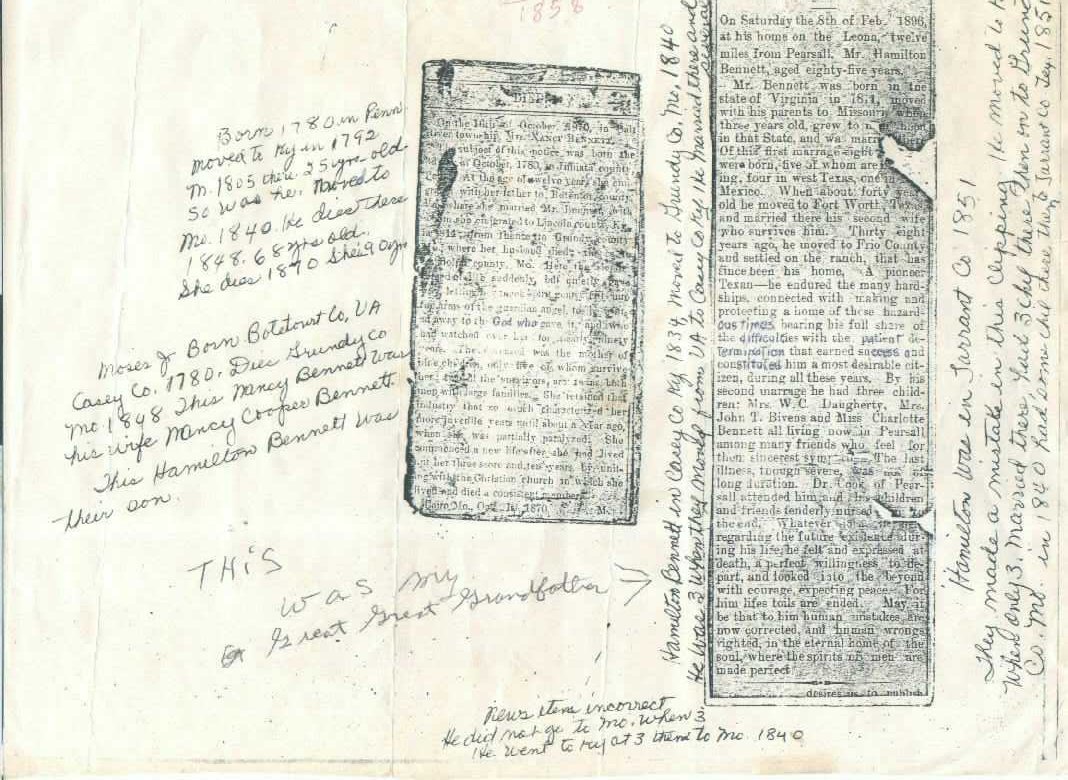 1858
Born 1780 in Penn
moved to Ky in 1792
m. 1805 there 25 yrs old.
So was he. Moved to
Mo. 1840. He dies there
1848. 68 yrs old.
She dies 1870 She 90 yrs
Moses J Born Botetourt Co, VA
Casey Co. 1780. Dies Grundy Co
Mo 1848 This Nancy Bennett was
his wife Nancy Cooper Bennett.
This Hamilton Bennett was
their son.
THIS
was my
Great Great Grandfather
DIED
On the 16th of October, 1870, in
township, Mrs. NANCY BENNETT,
subject of this notice was born the
of October, 1780, in Juniata county
At the age of twelve years she
with her father to
she married Mr. Bennett, with
she emigrated to Lincoln county, Ky.
from thence to Grundy county
where her husband died
county, Mo. Here the
suddenly, but quietly gave
arms of the guardian angel, to
away to the God who gave it, and who
had watched over her for nearly ninety
years. The deceased was the mother of
children, only five of whom survive
her. of the survivors, are
men with large families. She retained that
industry that so much characterized her
more juvenile years until about a year ago,
when she was partially paralyzed. She
commenced a new life after she had lived
out her three score and ten years, by unit-
ing with the Christian church in which she
lived and died a consistent member.
Cairo, Mo., Oct. 1870. M.
Hamilton Bennett in Casey Co Ky 1834 moved to Grundy Co. Mo, 1840
He was 3 when they moved from VA to Casey Co Ky. He married there and several
On Saturday the 8th of Feb. 1896,
at his home on the Leona, twelve
miles from Pearsall, Mr. Hamilton
Bennett, aged eighty-five years.
Mr. Bennett was born in the
state of Virginia in 1811, moved
with his parents to Missouri when
three years old, grew to
in that State, and was
Of this first marriage eight
were born, five of whom are
ing, four in west Texas, one in
Mexico. When about forty years
old he moved to Fort Worth, Texas
and married there his second wife
who survives him. Thirty eight
years ago, he moved to Frio County
and settled on the ranch, that has
since been his home. A pioneer
Texan—he endured the many hard-
ships, connected with making and
protecting a home of those hazard-
ous times, bearing his full share of
the difficulties with the patient de-
termination that earned success and
constituted him a most desirable cit-
izen, during all these years. By his
second marrage he had three child-
ren: Mrs. W. C. Daugherty, Mrs.
John T. Bivens and Miss Charlotte
Bennett all living now in Pearsall
among many friends who feel for
them sincerest The last
illness, though severe, was
long duration. Dr. Cook of Pear-
sall attended him and his children
and friends tenderly nursed him to
the end. Whatever
regarding the future existence dur-
ing his life, he felt and expressed at
death, a perfect willingness to de-
part, and looked into the beyond
with courage, expecting peace. For
him lifes toils are ended. May it
be that to him human mistakes are
now corrected, and human wrongs
righted, in the eternal home of the
soul, where the spirits of men are
made perfect
desires us to publish
Hamilton was in Tarrant Co 1851
They made a mistake in this clipping. He moved to
when only 3. Married there, had 3 chil there Then on to Grundy
Co. Mo. in 1840 had some chil there then to Tarrant Co Tex, 1851
News item incorrect
He did not go to Mo. when 3
He went to Ky at 3 then to Mo. 1840